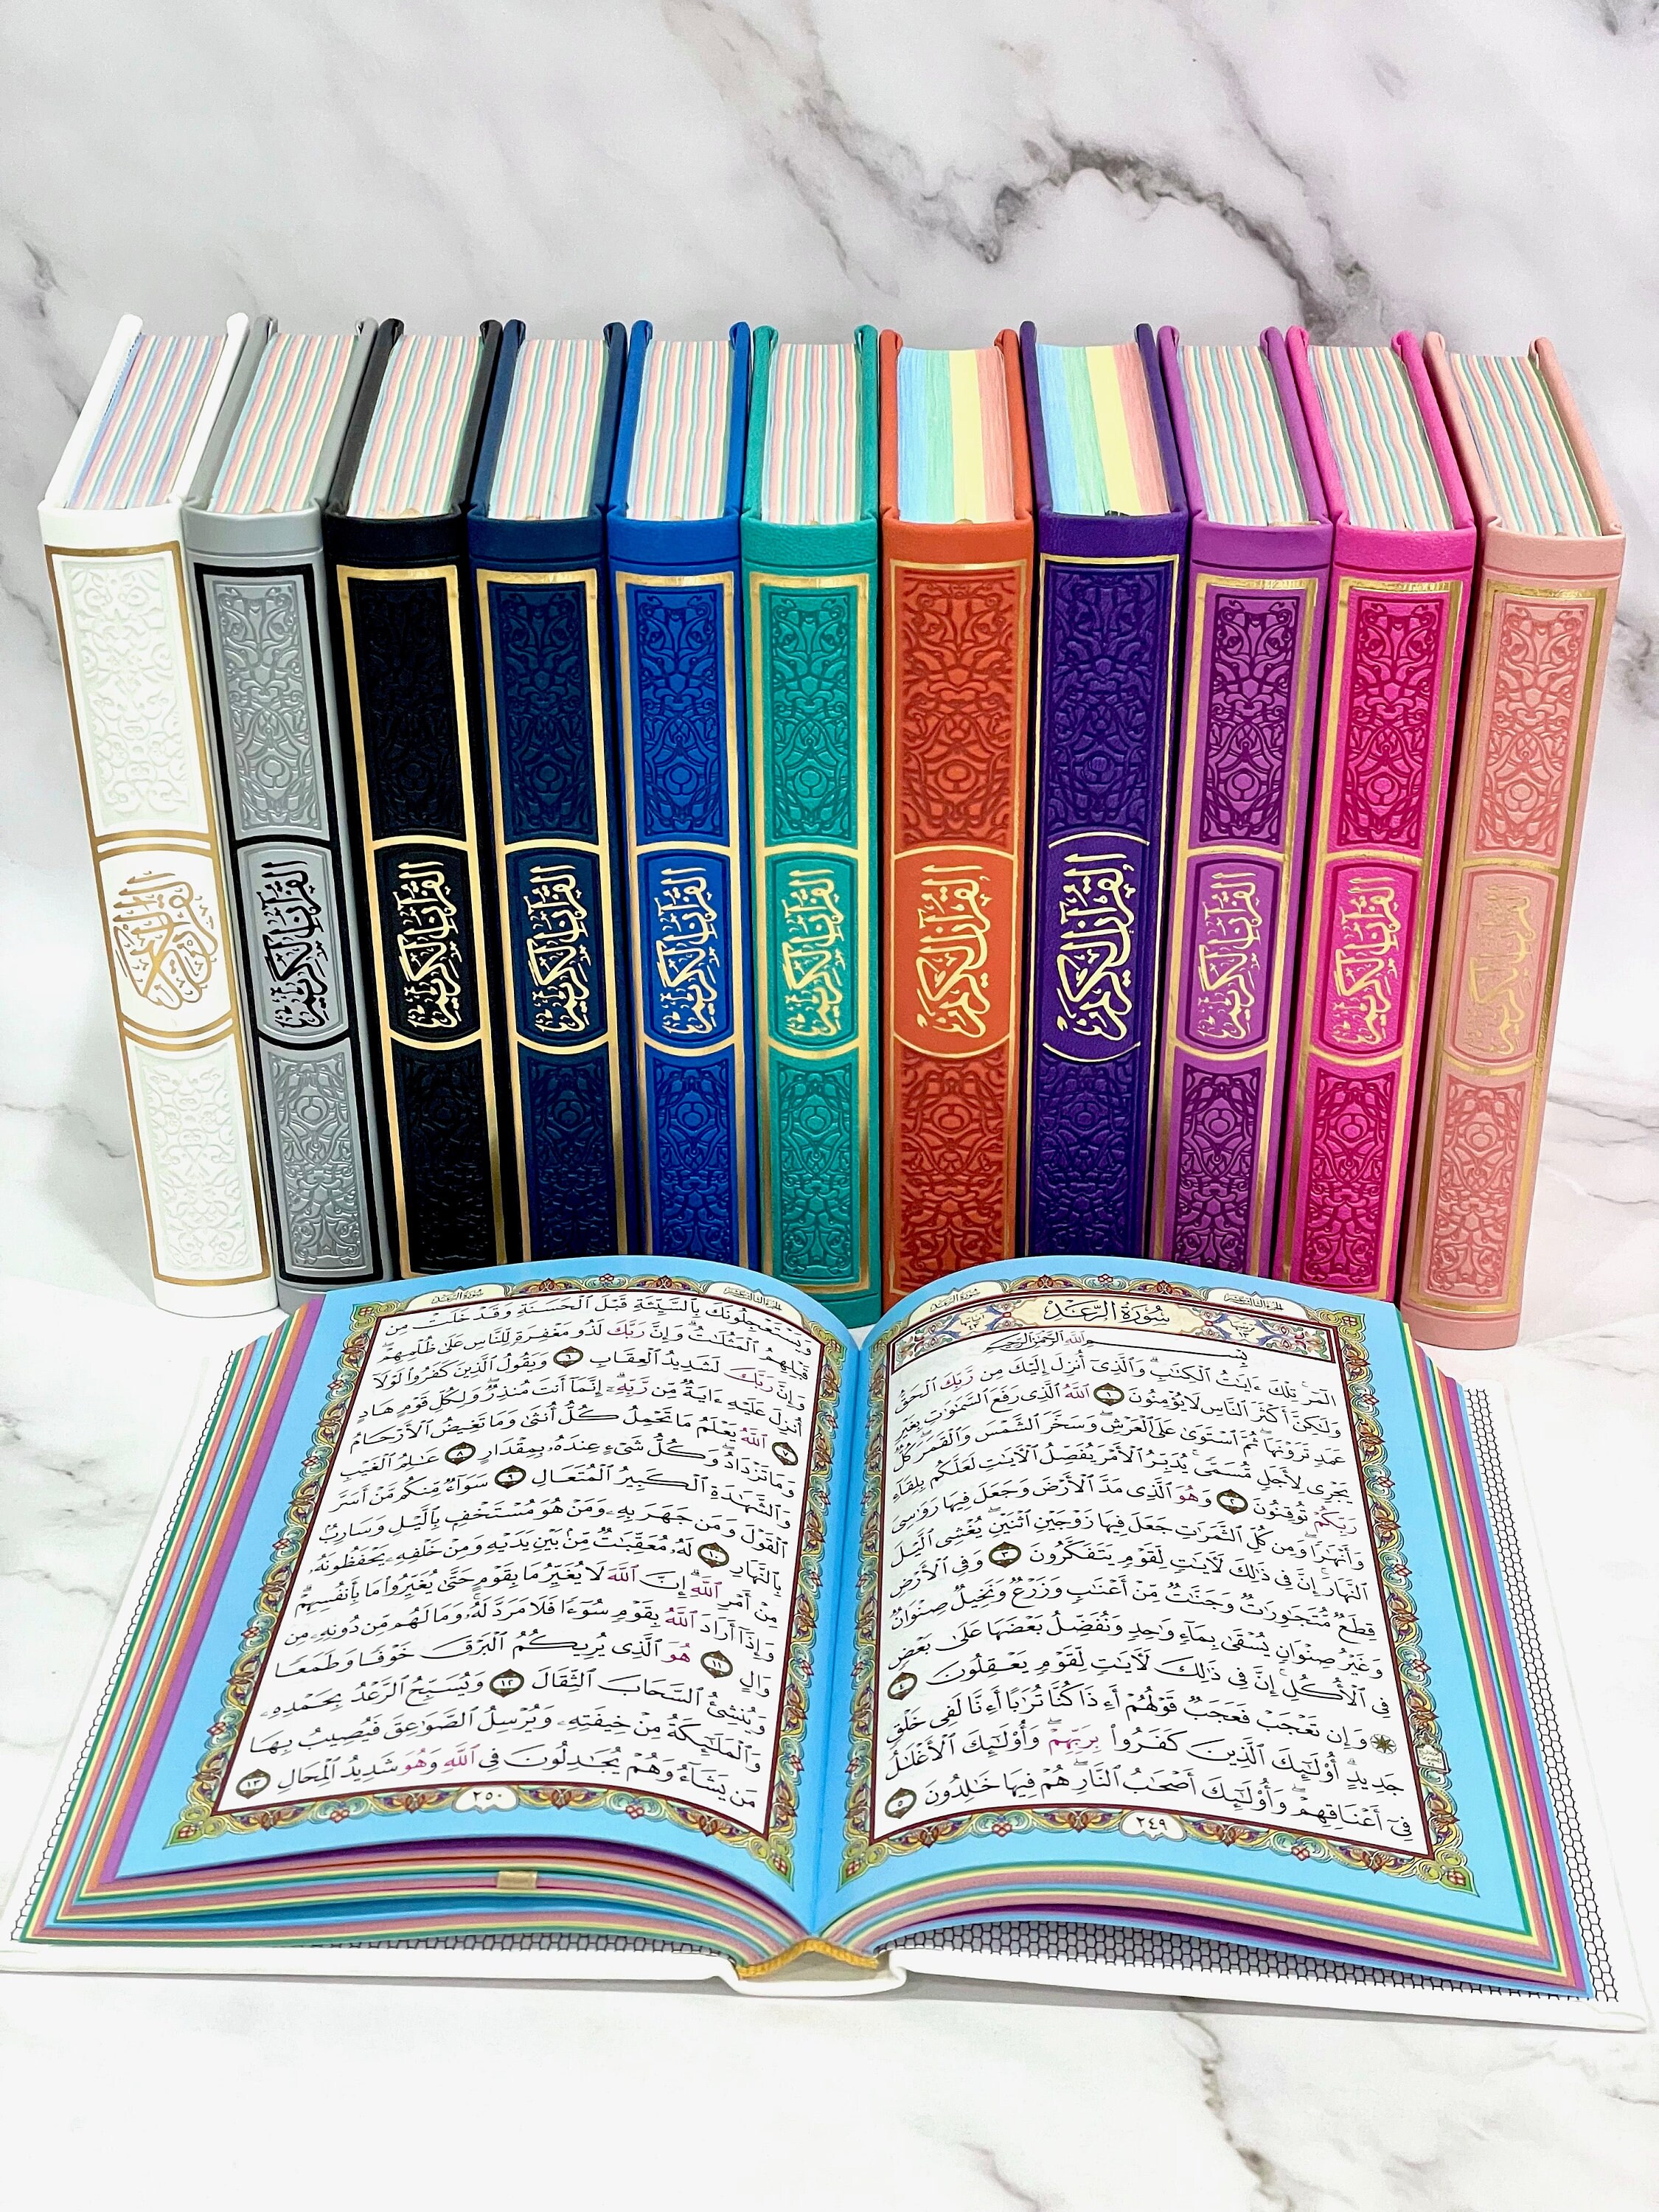 القرآن الكريم
القرآن الكريم
القرآن الكريم
القرآن الكريم
القرآن الكريم
القرآن الكريم
القرآن الكريم
القرآن الكريم
القرآن الكريم
القرآن الكريم
القرآن الكريم
سُورَةُ الرَّعْدِ
سُورَةُ الرَّعْدِ
بِسْمِ اللَّهِ الرَّحْمَٰنِ الرَّحِيمِ
الٓمٓرۚ تِلْكَ ءَايَٰتُ ٱلْكِتَٰبِۗ وَٱلَّذِىٓ أُنزِلَ إِلَيْكَ مِن رَّبِّكَ ٱلْحَقُّ
وَلَٰكِنَّ أَكْثَرَ ٱلنَّاسِ لَا يُؤْمِنُونَ ١ ٱللَّهُ ٱلَّذِى رَفَعَ ٱلسَّمَٰوَٰتِ بِغَيْرِ
عَمَدٍ تَرَوْنَهَاۖ ثُمَّ ٱسْتَوَىٰ عَلَى ٱلْعَرْشِۖ وَسَخَّرَ ٱلشَّمْسَ وَٱلْقَمَرَۖ كُلٌّ
يَجْرِى لِأَجَلٍ مُّسَمًّىۚ يُدَبِّرُ ٱلْأَمْرَ يُفَصِّلُ ٱلْءَايَٰتِ لَعَلَّكُم بِلِقَآءِ
رَبِّكُمْ تُوقِنُونَ ٢ وَهُوَ ٱلَّذِى مَدَّ ٱلْأَرْضَ وَجَعَلَ فِيهَا رَوَٰسِىَ
وَأَنْهَٰرًاۖ وَمِن كُلِّ ٱلثَّمَرَٰتِ جَعَلَ فِيهَا زَوْجَيْنِ ٱثْنَيْنِۖ يُغْشِى ٱلَّيْلَ
ٱلنَّهَارَۚ إِنَّ فِى ذَٰلِكَ لَءَايَٰتٍ لِّقَوْمٍ يَتَفَكَّرُونَ ٣ وَفِى ٱلْأَرْضِ
قِطَعٌ مُّتَجَٰوِرَٰتٌ وَجَنَّٰتٌ مِّنْ أَعْنَٰبٍ وَزَرْعٌ وَنَخِيلٌ صِنْوَانٌ
وَغَيْرُ صِنْوَانٍ يُسْقَىٰ بِمَآءٍ وَٰحِدٍ وَنُفَضِّلُ بَعْضَهَا عَلَىٰ بَعْضٍ
فِى ٱلْأُكُلِۚ إِنَّ فِى ذَٰلِكَ لَءَايَٰتٍ لِّقَوْمٍ يَعْقِلُونَ ٤
۞ وَإِن تَعْجَبْ فَعَجَبٌ قَوْلُهُمْ أَءِذَا كُنَّا تُرَٰبًا أَءِنَّا لَفِى خَلْقٍ
جَدِيدٍۗ أُو۟لَٰٓئِكَ ٱلَّذِينَ كَفَرُوا۟ بِرَبِّهِمْۖ وَأُو۟لَٰٓئِكَ ٱلْأَغْلَٰلُ
فِىٓ أَعْنَاقِهِمْۖ وَأُو۟لَٰٓئِكَ أَصْحَٰبُ ٱلنَّارِۖ هُمْ فِيهَا خَٰلِدُونَ ٥
٢٤٩
سُورَةُ الرَّعْدِ
وَيَسْتَعْجِلُونَكَ بِٱلسَّيِّئَةِ قَبْلَ ٱلْحَسَنَةِ وَقَدْ خَلَتْ مِن
قَبْلِهِمُ ٱلْمَثُلَٰتُۗ وَإِنَّ رَبَّكَ لَذُو مَغْفِرَةٍ لِّلنَّاسِ عَلَىٰ ظُلْمِهِمْۖ
وَإِنَّ رَبَّكَ لَشَدِيدُ ٱلْعِقَابِ ٦ وَيَقُولُ ٱلَّذِينَ كَفَرُوا۟ لَوْلَآ
أُنزِلَ عَلَيْهِ ءَايَةٌ مِّن رَّبِّهِۦٓۗ إِنَّمَآ أَنتَ مُنذِرٌۖ وَلِكُلِّ قَوْمٍ هَادٍ
٧ ٱللَّهُ يَعْلَمُ مَا تَحْمِلُ كُلُّ أُنثَىٰ وَمَا تَغِيضُ ٱلْأَرْحَامُ
وَمَا تَزْدَادُۖ وَكُلُّ شَىْءٍ عِندَهُۥ بِمِقْدَارٍ ٨ عَٰلِمُ ٱلْغَيْبِ
وَٱلشَّهَٰدَةِ ٱلْكَبِيرُ ٱلْمُتَعَالِ ٩ سَوَآءٌ مِّنكُم مَّنْ أَسَرَّ
ٱلْقَوْلَ وَمَن جَهَرَ بِهِۦ وَمَنْ هُوَ مُسْتَخْفٍۭ بِٱلَّيْلِ وَسَارِبٌۢ
بِٱلنَّهَارِ ١٠ لَهُۥ مُعَقِّبَٰتٌ مِّنۢ بَيْنِ يَدَيْهِ وَمِنْ خَلْفِهِۦ يَحْفَظُونَهُۥ
مِنْ أَمْرِ ٱللَّهِۗ إِنَّ ٱللَّهَ لَا يُغَيِّرُ مَا بِقَوْمٍ حَتَّىٰ يُغَيِّرُوا۟ مَا بِأَنفُسِهِمْۗ
وَإِذَآ أَرَادَ ٱللَّهُ بِقَوْمٍ سُوٓءًا فَلَا مَرَدَّ لَهُۥۚ وَمَا لَهُم مِّن دُونِهِۦ مِن
وَالٍ ١١ هُوَ ٱلَّذِى يُرِيكُمُ ٱلْبَرْقَ خَوْفًا وَطَمَعًا
وَيُنشِئُ ٱلسَّحَابَ ٱلثِّقَالَ ١٢ وَيُسَبِّحُ ٱلرَّعْدُ بِحَمْدِهِۦ
وَٱلْمَلَٰٓئِكَةُ مِنْ خِيفَتِهِۦ وَيُرْسِلُ ٱلصَّوَٰعِقَ فَيُصِيبُ بِهَا
مَن يَشَآءُ وَهُمْ يُجَٰدِلُونَ فِى ٱللَّهِ وَهُوَ شَدِيدُ ٱلْمِحَالِ ١٣
٢٥٠